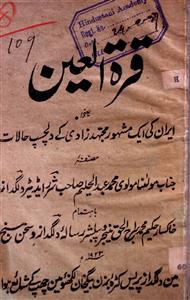 Hindustani Academy
109
قرۃ العین
یعنی
ایران کی ایک مشہور مجتہد زادی کے دلچسپ حالات
مصنفہ
جناب مولٰنا مولوی محمد عبدالحلیم صاحب شرر ایڈیٹر دلگداز
باہتمام
خاکسار حکیم محمد سراج الحق منیجر و پبلشر رسالہ دلگداز و سخن سنج
۱۹۲۳ء
دلگداز پریس کٹرہ بزن بیگ خان لکھنؤ میں چھپ کے شائع ہوا